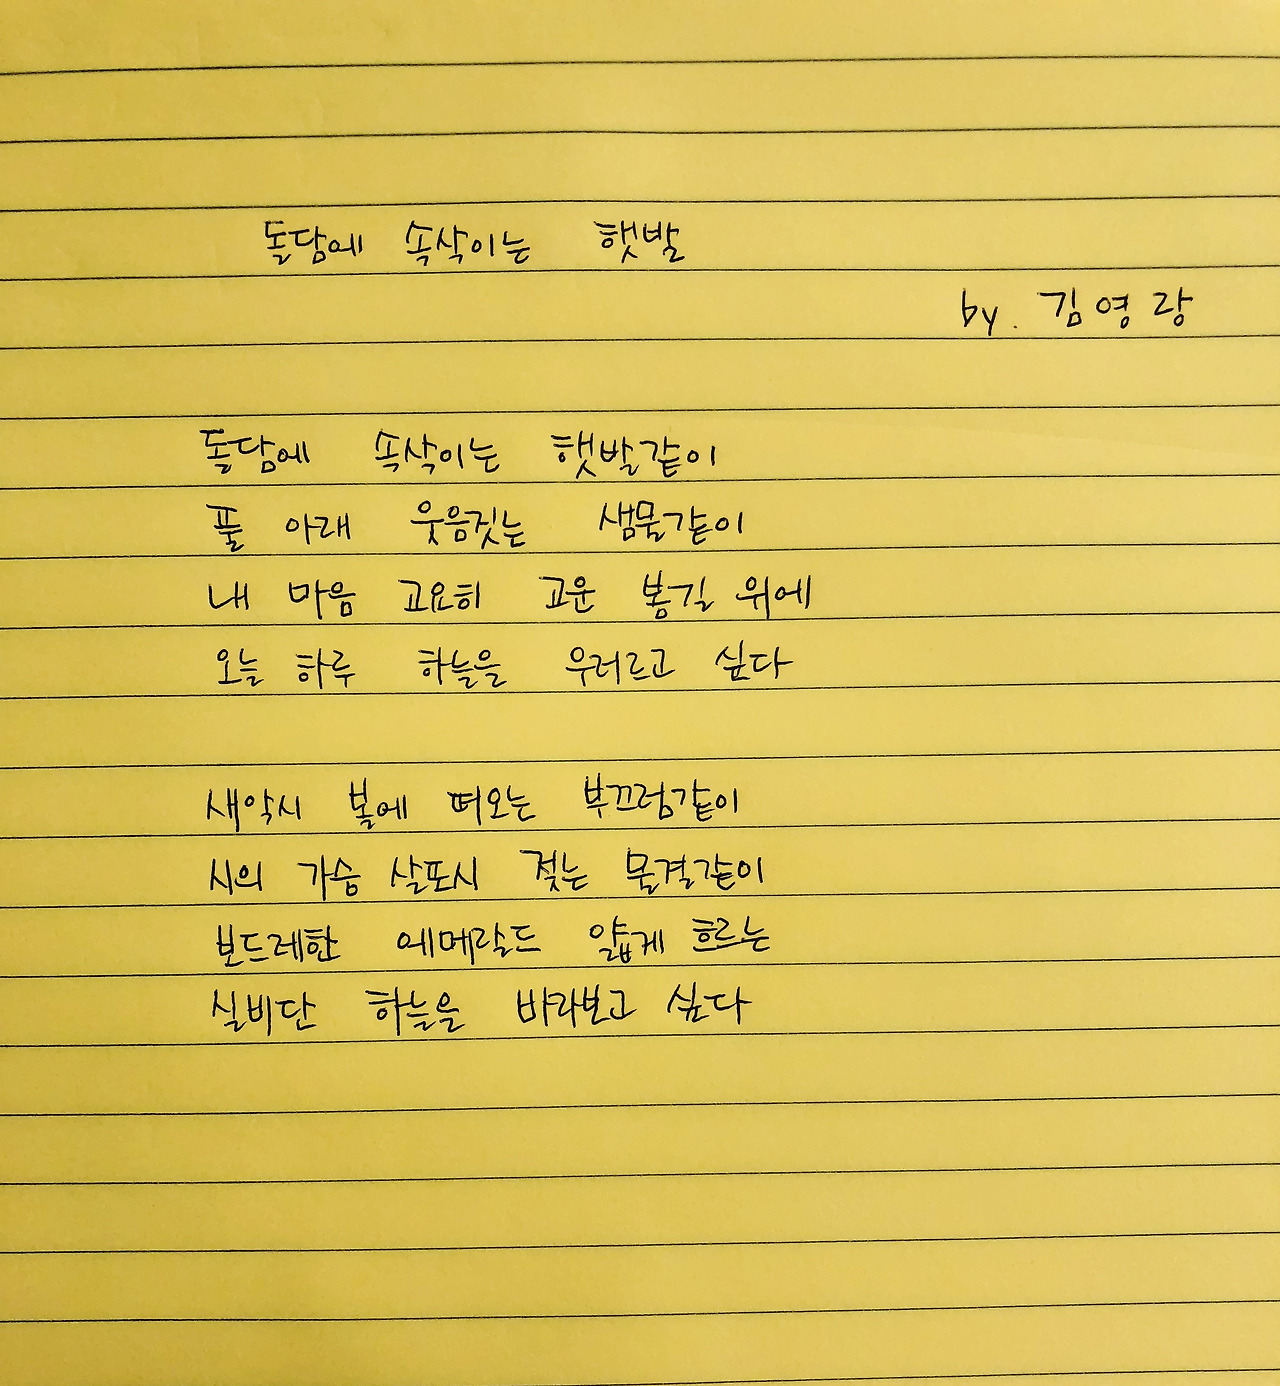 돌담에 속삭이는 햇발
by. 김영랑
돌담에 속삭이는 햇발같이
풀 아래 웃음짓는 샘물같이
내 마음 고요히 고운 봄길 위에
오늘 하루 하늘을 우러르고 싶다
새악시 볼에 떠오는 부끄럼같이
시의 가슴 살포시 젖는 물결같이
보드레한 에메랄드 얇게 흐르는
실비단 하늘을 바라보고 싶다